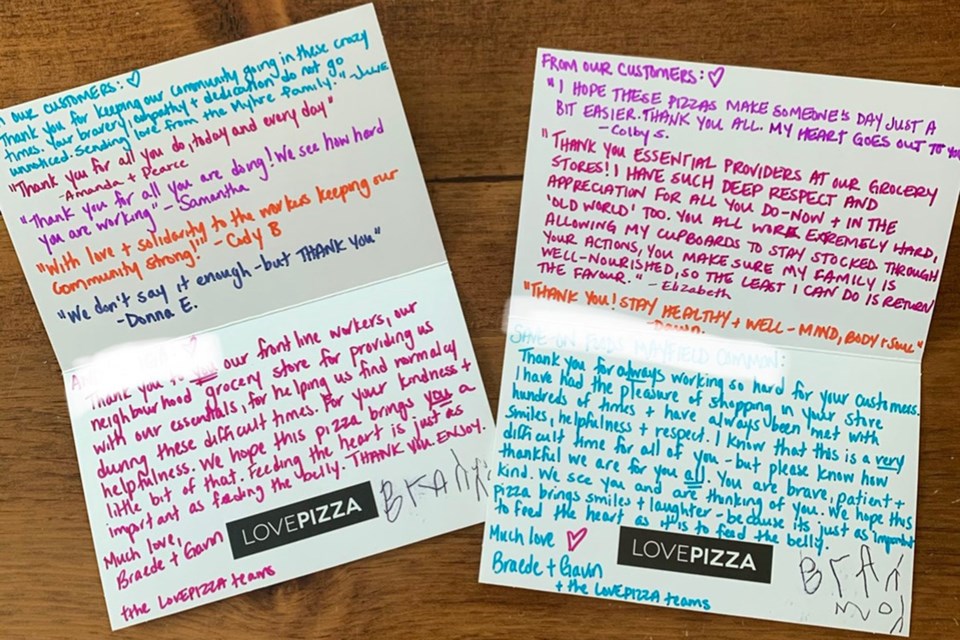 OUR CUSTOMERS: ♡
Thank you for keeping our community going in these crazy
times. Your bravery, empathy + dedication do not go
unnoticed. Sending love from the Myhre family." - Julie
"Thank you for all you do, today and every day"
- Amanda + Pearce
"Thank you for all you are doing! We see how hard
you are working" - Samantha
"With love + solidarity to the workers keeping our
community strong!" - Cody B
"We don't say it enough - but THANK YOU"
- Donna E.
Thank you to you our front line workers, our
neighbourhood grocery store for providing us
with our essentials, for helping us find normalcy
during these difficult times. For your kindness +
helpfulness. We hope this pizza brings you a
little bit of that. Feeding the heart is just as
important as feeding the belly. THANK YOU. ENJOY.
Much love,
Braede + Gavin
+ the LOVEPIZZA teams
LOVEPIZZA
FROM OUR CUSTOMERS: ♡
"I HOPE THESE PIZZAS MAKE SOMEONE'S DAY JUST A
BIT EASIER. THANK YOU ALL. MY HEART GOES OUT TO YOU
- Colby S.
"THANK YOU ESSENTIAL PROVIDERS AT OUR GROCERY
STORES! I HAVE SUCH DEEP RESPECT AND
APPRECIATION FOR ALL YOU DO - NOW + IN THE
'OLD WORLD' TOO. YOU ALL WORK EXREMELY HARD,
ALLOWING MY CUPBOARDS TO STAY STOCKED THROUGH
YOUR ACTIONS, YOU MAKE SURE MY FAMILY IS
WELL-NOURISHED, SO THE LEAST I CAN DO IS RETURN
THE FAVOUR." - Elizabeth
"THANK YOU! STAY HEALTHY + WELL - MIND, BODY + SOUL"
SAVE ON FOODS MAYFIELD COMMON:
Thank you for always working so hard for your customers.
I have had the pleasure of shopping in your store
hundreds of times + have always been met with
smiles, helpfulness + respect. I know that this is a very
difficult time for all of you - but please know how
thankful we are for you all. You are brave, patient +
kind. We see you and are thinking of you. We hope this
pizza brings smiles + laughter - because its just as important
to feed the heart as it is to feed the belly.
Much love ♡
Braede + Gavin
+ the LOVEPIZZA teams
LOVEPIZZA